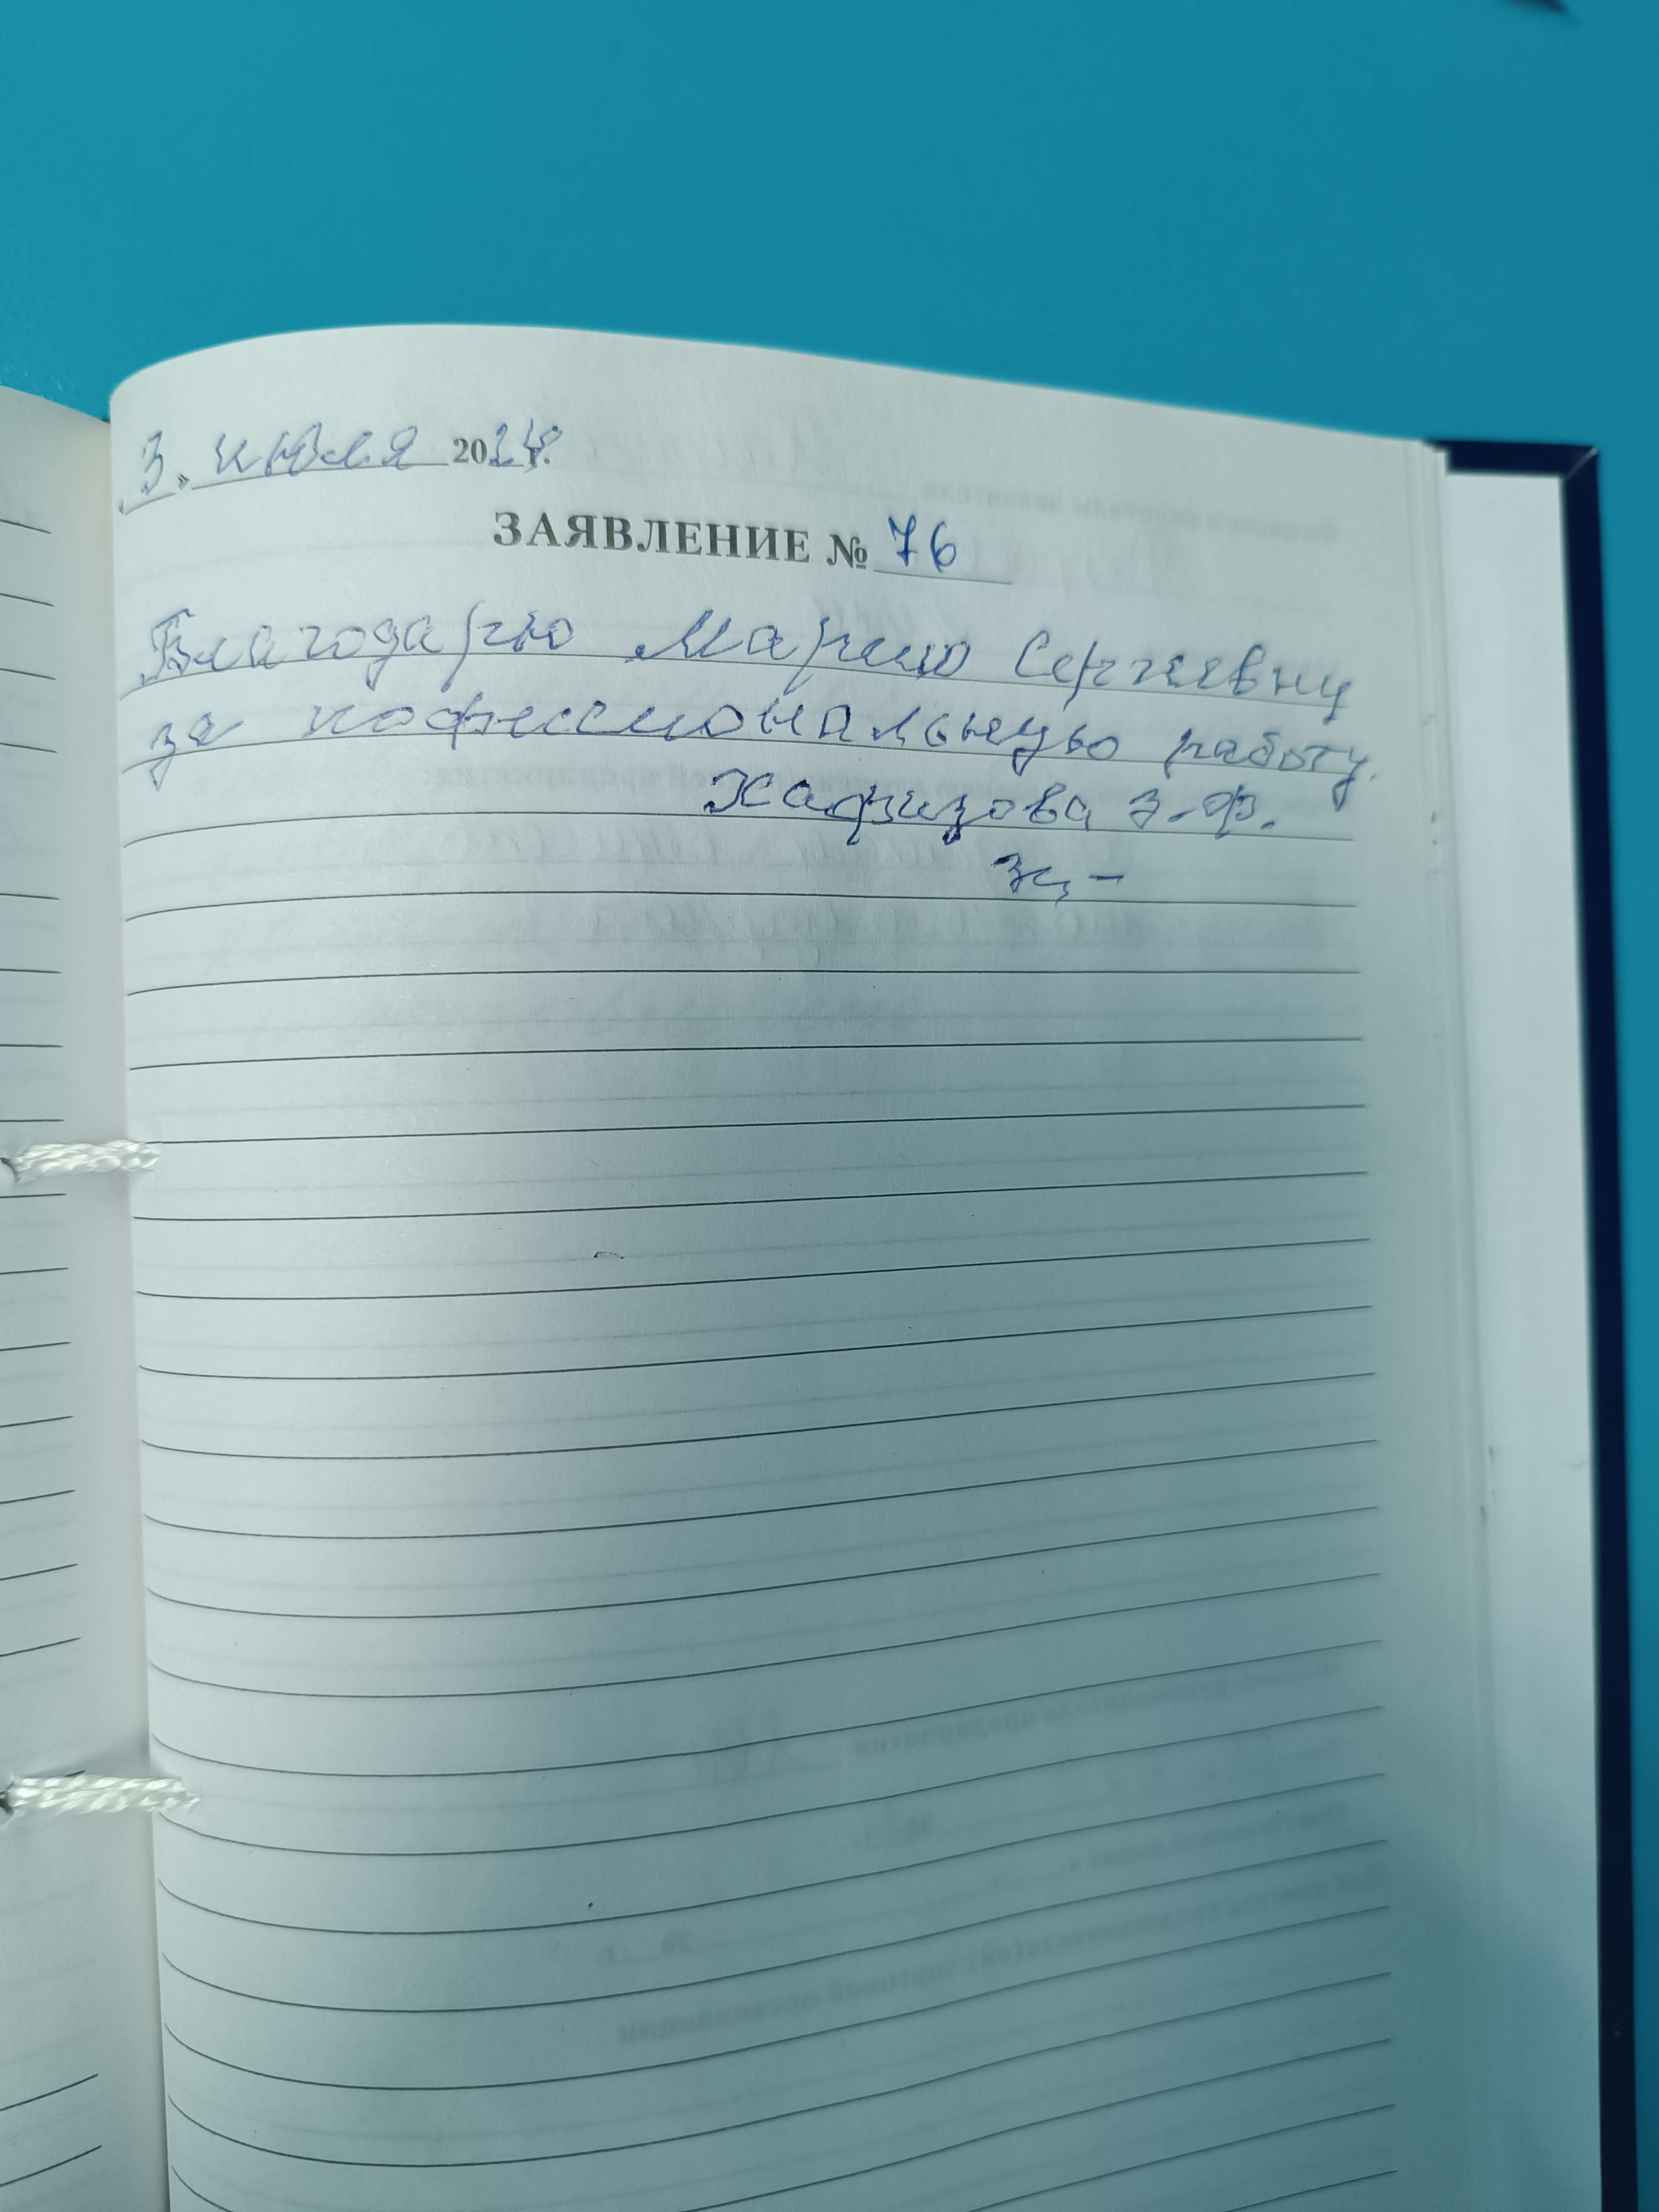 «3» июля 2024г.
ЗАЯВЛЕНИЕ № 76
Благодарю Марию Сергеевну
за пофессиональную работу.
Хафизова З.Ф.